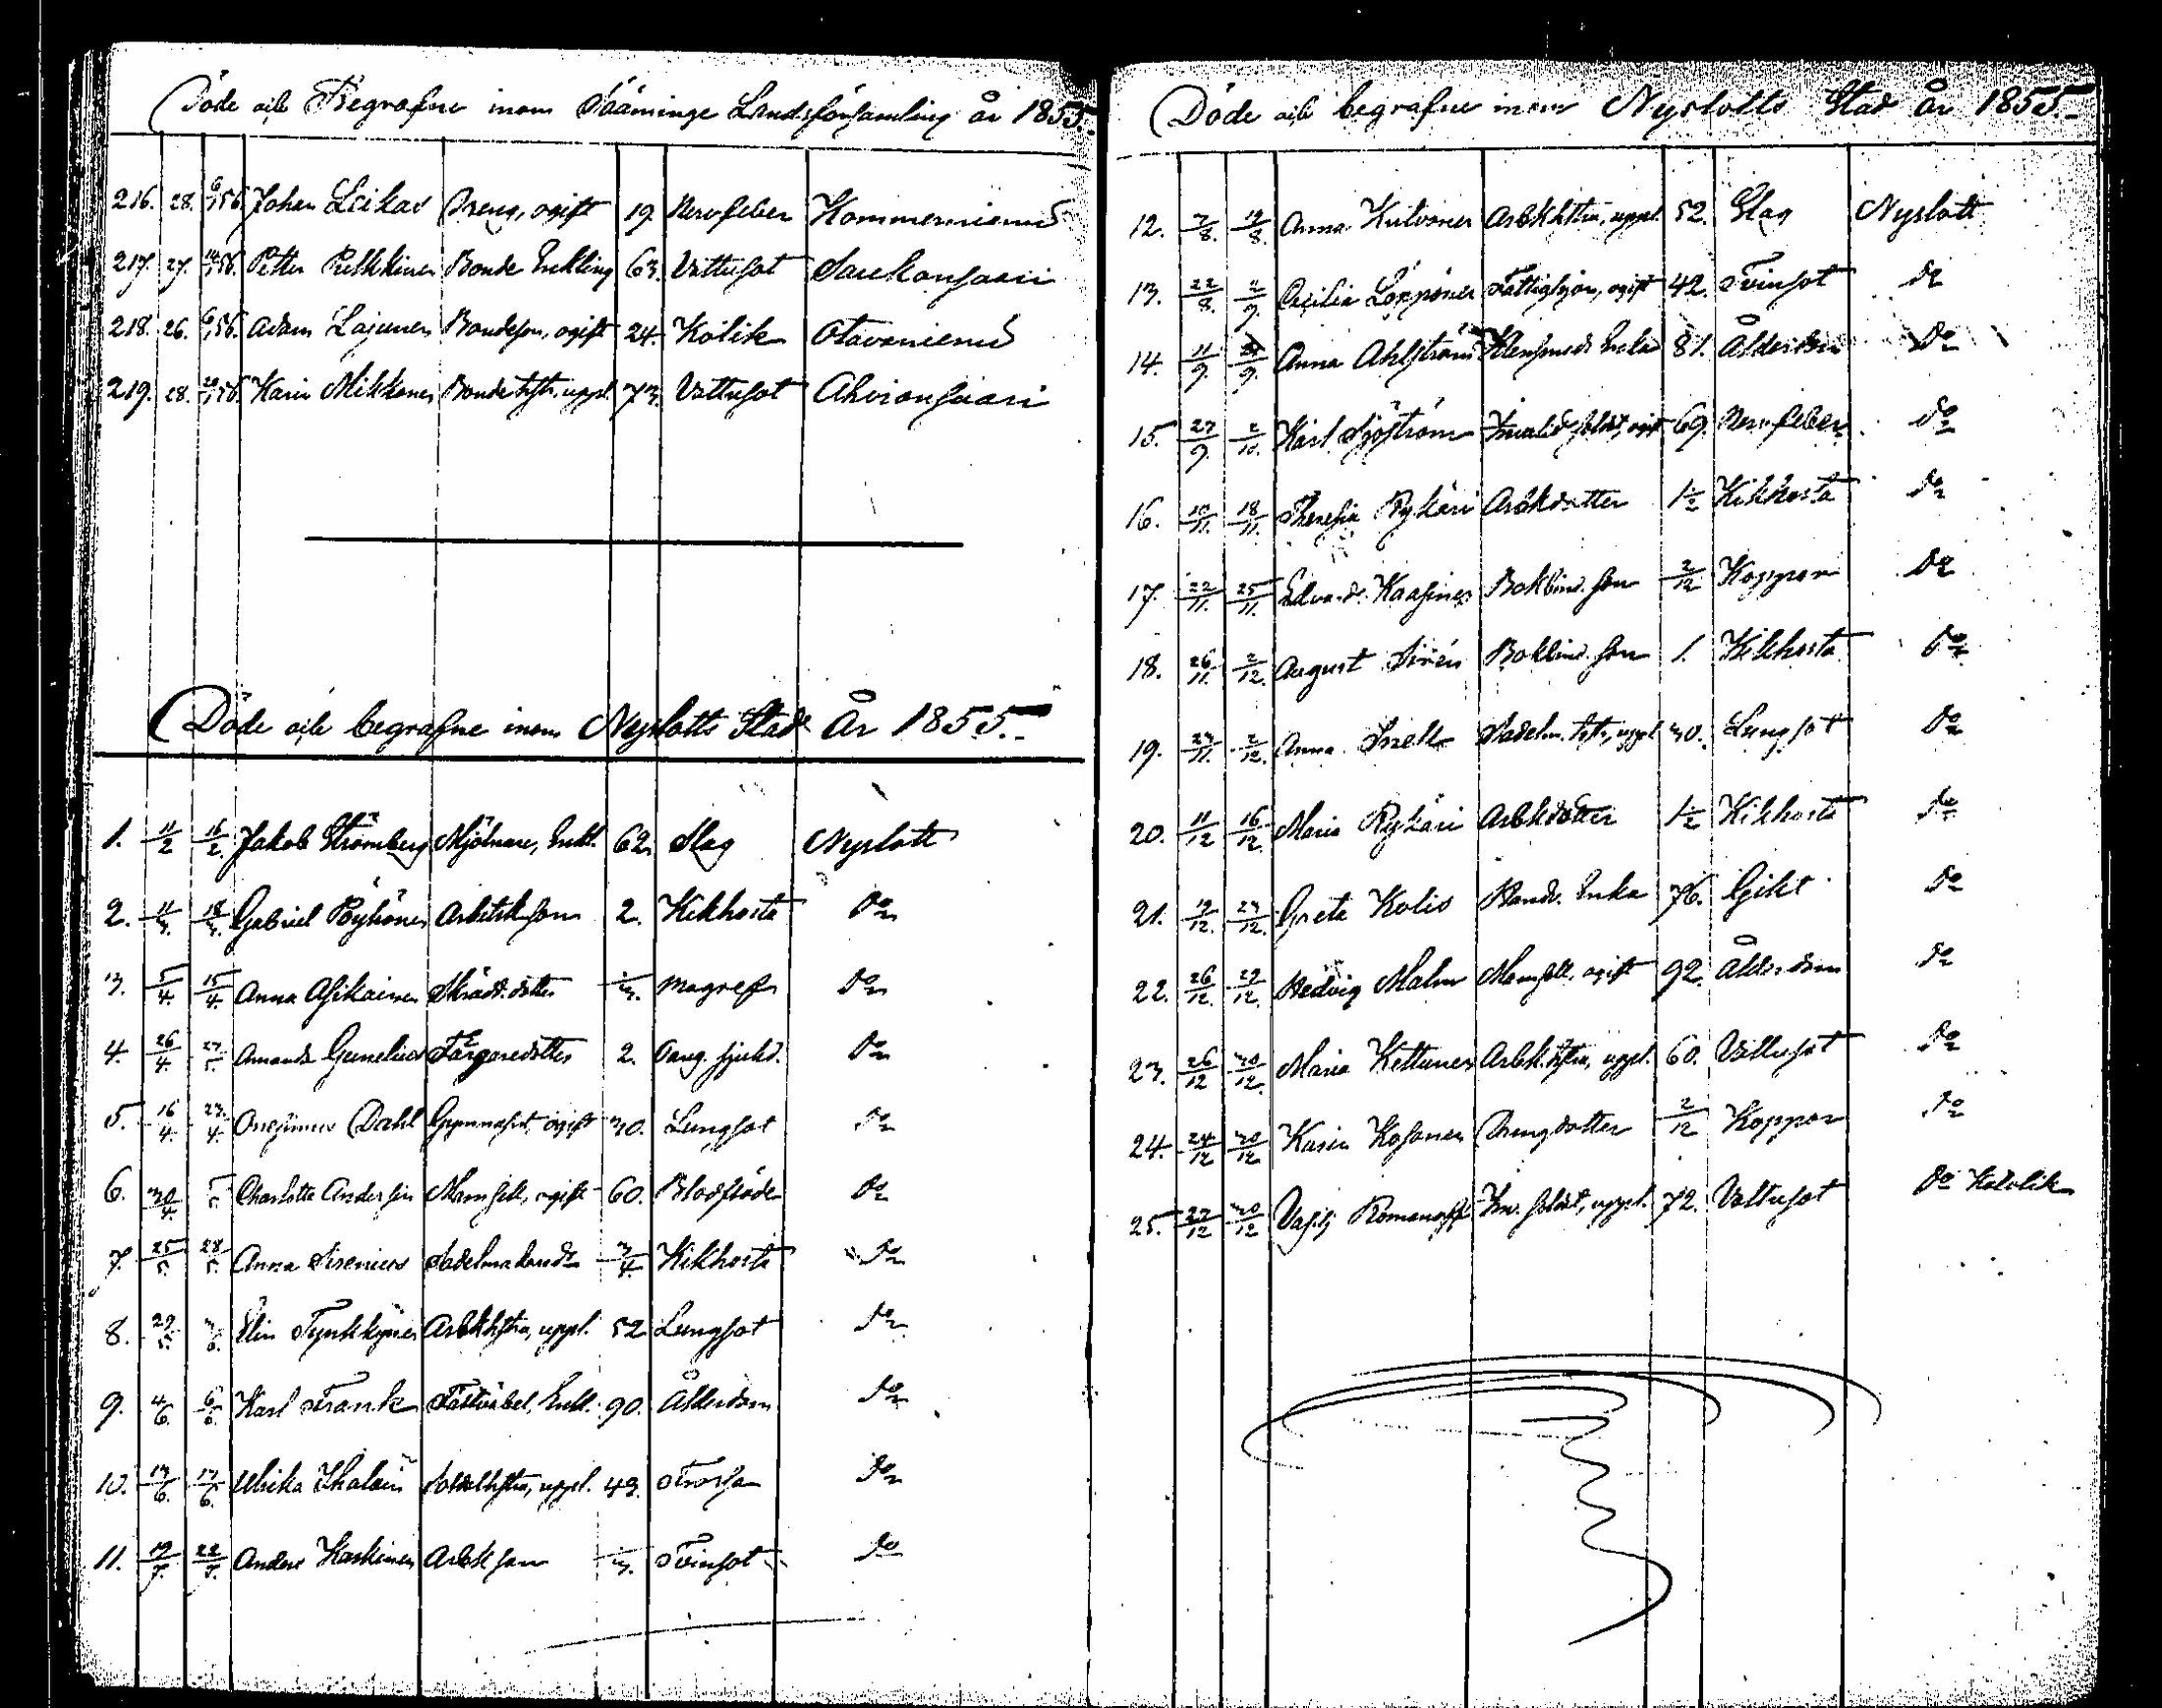 Döde och Begrafne inom Sääminge Landsförsamling år 1855.
216. 28. 6/1 56. Johan Leikas Dreng, ogift 19. Nervfeber Kommerniemi
217. 27. 56. Petter Pelkkinen Bonde Enkling 63. Vattusot Saukonsaari
218. 26. 6/1 56. Adam Lajunen Bondeson, ogift 24. Kolik Otavaniemi
219. 28. 56. Karin Mikkonen Bondehstr, uppl. 73. Vattusot Ahvionsaari
Döde och begrafne inom Nyslotts Stad År 1855.
1. 11/2 16/2. Jakob Strömberg Mjölnare, Enkl. 62. Slag Nyslott
2. 11/3. 18/3. Gabriel Pöyhönen Arbetsk. son 2. Kikhosta Do
3. 5/4. 15/4. Anna Asikainen Skrädd. dotter 1/3. Magref Do
4. 26/4. 27/5. Amanda Gunelius Färgaredotter 2. Bang. sjukd. Do
5. 16/4. 23/4. Onesimus Dahl Gymnasist, ogift 30. Lungsot Do
6. 30/4. 5/5. Charlotta Andersin Mamsell, ogift 60. Blodflöde Do
7. 25/5. 28/5. Anna Sirenius Sadelmakaredr 3/4. Kikhosta Do
8. 29/5. 3/6. Elin Tynkkynen Arbkhstru, uppl. 52 Lungsot Do
9. 4/6. 6/6. Karl Frank Fältväbel, Enkl. 90. Ålderdom Do
10. 13/6. 17/6. Ulrika Ihalain Soldathstru, uppl. 43. Frossa Do
11. 19/7. 22/7. Anders Kaskinen Arbk son 1/3. Tvinsot Do
Döde och begrafne inom Nyslotts Stad År 1855.
12. 7/8. 12/8. Anna Kulvonen Arbkhstru, uppl. 52. Slag Nyslott
13. 22/8. 2/9. Cecilia Löppönen Fattighjon, ogift 42. Tvinsot Do
14. 11/9. Anna Ahlström Enka 81. Ålderdom Do
15. 27/9. 2/10. Karl Sjöström Invalid soldat, ogift 69. Nervfeber Do
16. 10/11. 18/11. Theresia Rykäri Arbkdotter 1 1/2 Kikhosta Do
17. 22/11. 25/11. Edvard Kaasinen Bokbind. son 2/12 Koppor Do
18. 26/11. 2/12. August Sirén Bokbind. son 1. Kikhosta Do
19. 27/11. 2/12. Anna Snell Sadelm. hstr, uppl. 30. Lungsot Do
20. 11/12 16/12. Maria Rykäri Arbkdotter 1 1/2 Kikhosta Do
21. 19/12. 23/12. Greta Kolis Handl. Enka 76. Gikt Do
22. 26/12. 29/12. Hedvig Malm Mamsell, ogift 92. Ålderdom Do
23. 26/12 30/12. Maria Kettunen Arbk. hstru, uppl. 60. Vattusot Do
24. 24/12 30/12 Karin Kosonen Drengdotter 2/12 Koppor Do
25. 27/12 30/12 Vasilj Romanoff Inv. soldat, uppl. 72. Vattusot Do Katolik